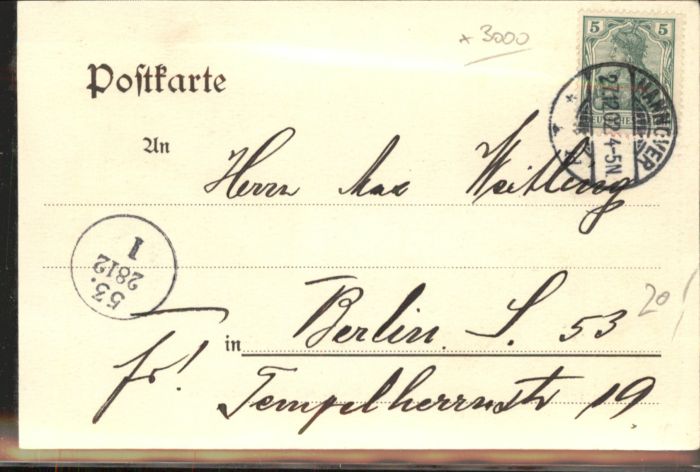 * 3000
5 5
DEUTSCHES
HANNOVER
27.12.02 4-5N
* * 1
Postkarte
An
Herrn Max Weitling
53.
2812
1
in Berlin S. 53
20
fr! Tempelherrnstr 19